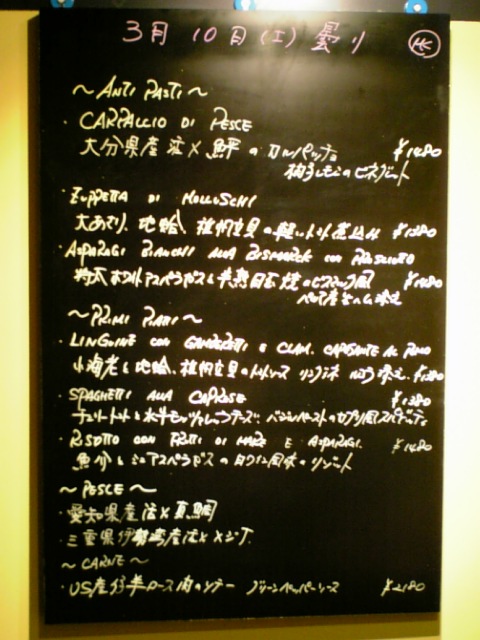 3月 10日(土) 曇り
~ANTI PASTI~
・CARPACCIO DI PESCE
大分県産 活〆 鮃 の カルパッチョ ¥1480
柚子しモンのビネグレット
・ZUPPETTA DI MOLLUSCHI
大あさり、地蛤、 の軽いトマト煮込み ¥1380
・ASPARAGI BIANCHI ALLA BISMARCK CON PROSCIUTTO
特大ホワイトアスパラガスと半熟目玉焼のビスマルク風 ¥1480
産生ハム添え
~PRIMI PIATTI~
・LINGUINE CON GAMBERETTI E CLAM.
小海老と地蛤、 のトマトソース リングイネ 添え ¥1380
・SPAGHETTI ALLA CAPRESE ¥1380
チェリートマトと水牛モッツァレラチーズ、バジルペーストのカプリ風スパゲッティ
・RISOTTO CON FRUTTI DI MARE E ASPARAGI. ¥1480
魚介とミニアスパラガスの白ワイン風味のリゾット
~PESCE~
・愛知県産活〆真鯛
・三重県伊勢湾産活〆メジナ
~CARNE~
・US産仔羊ロース肉のソテー グリーンペッパーソース ¥2180